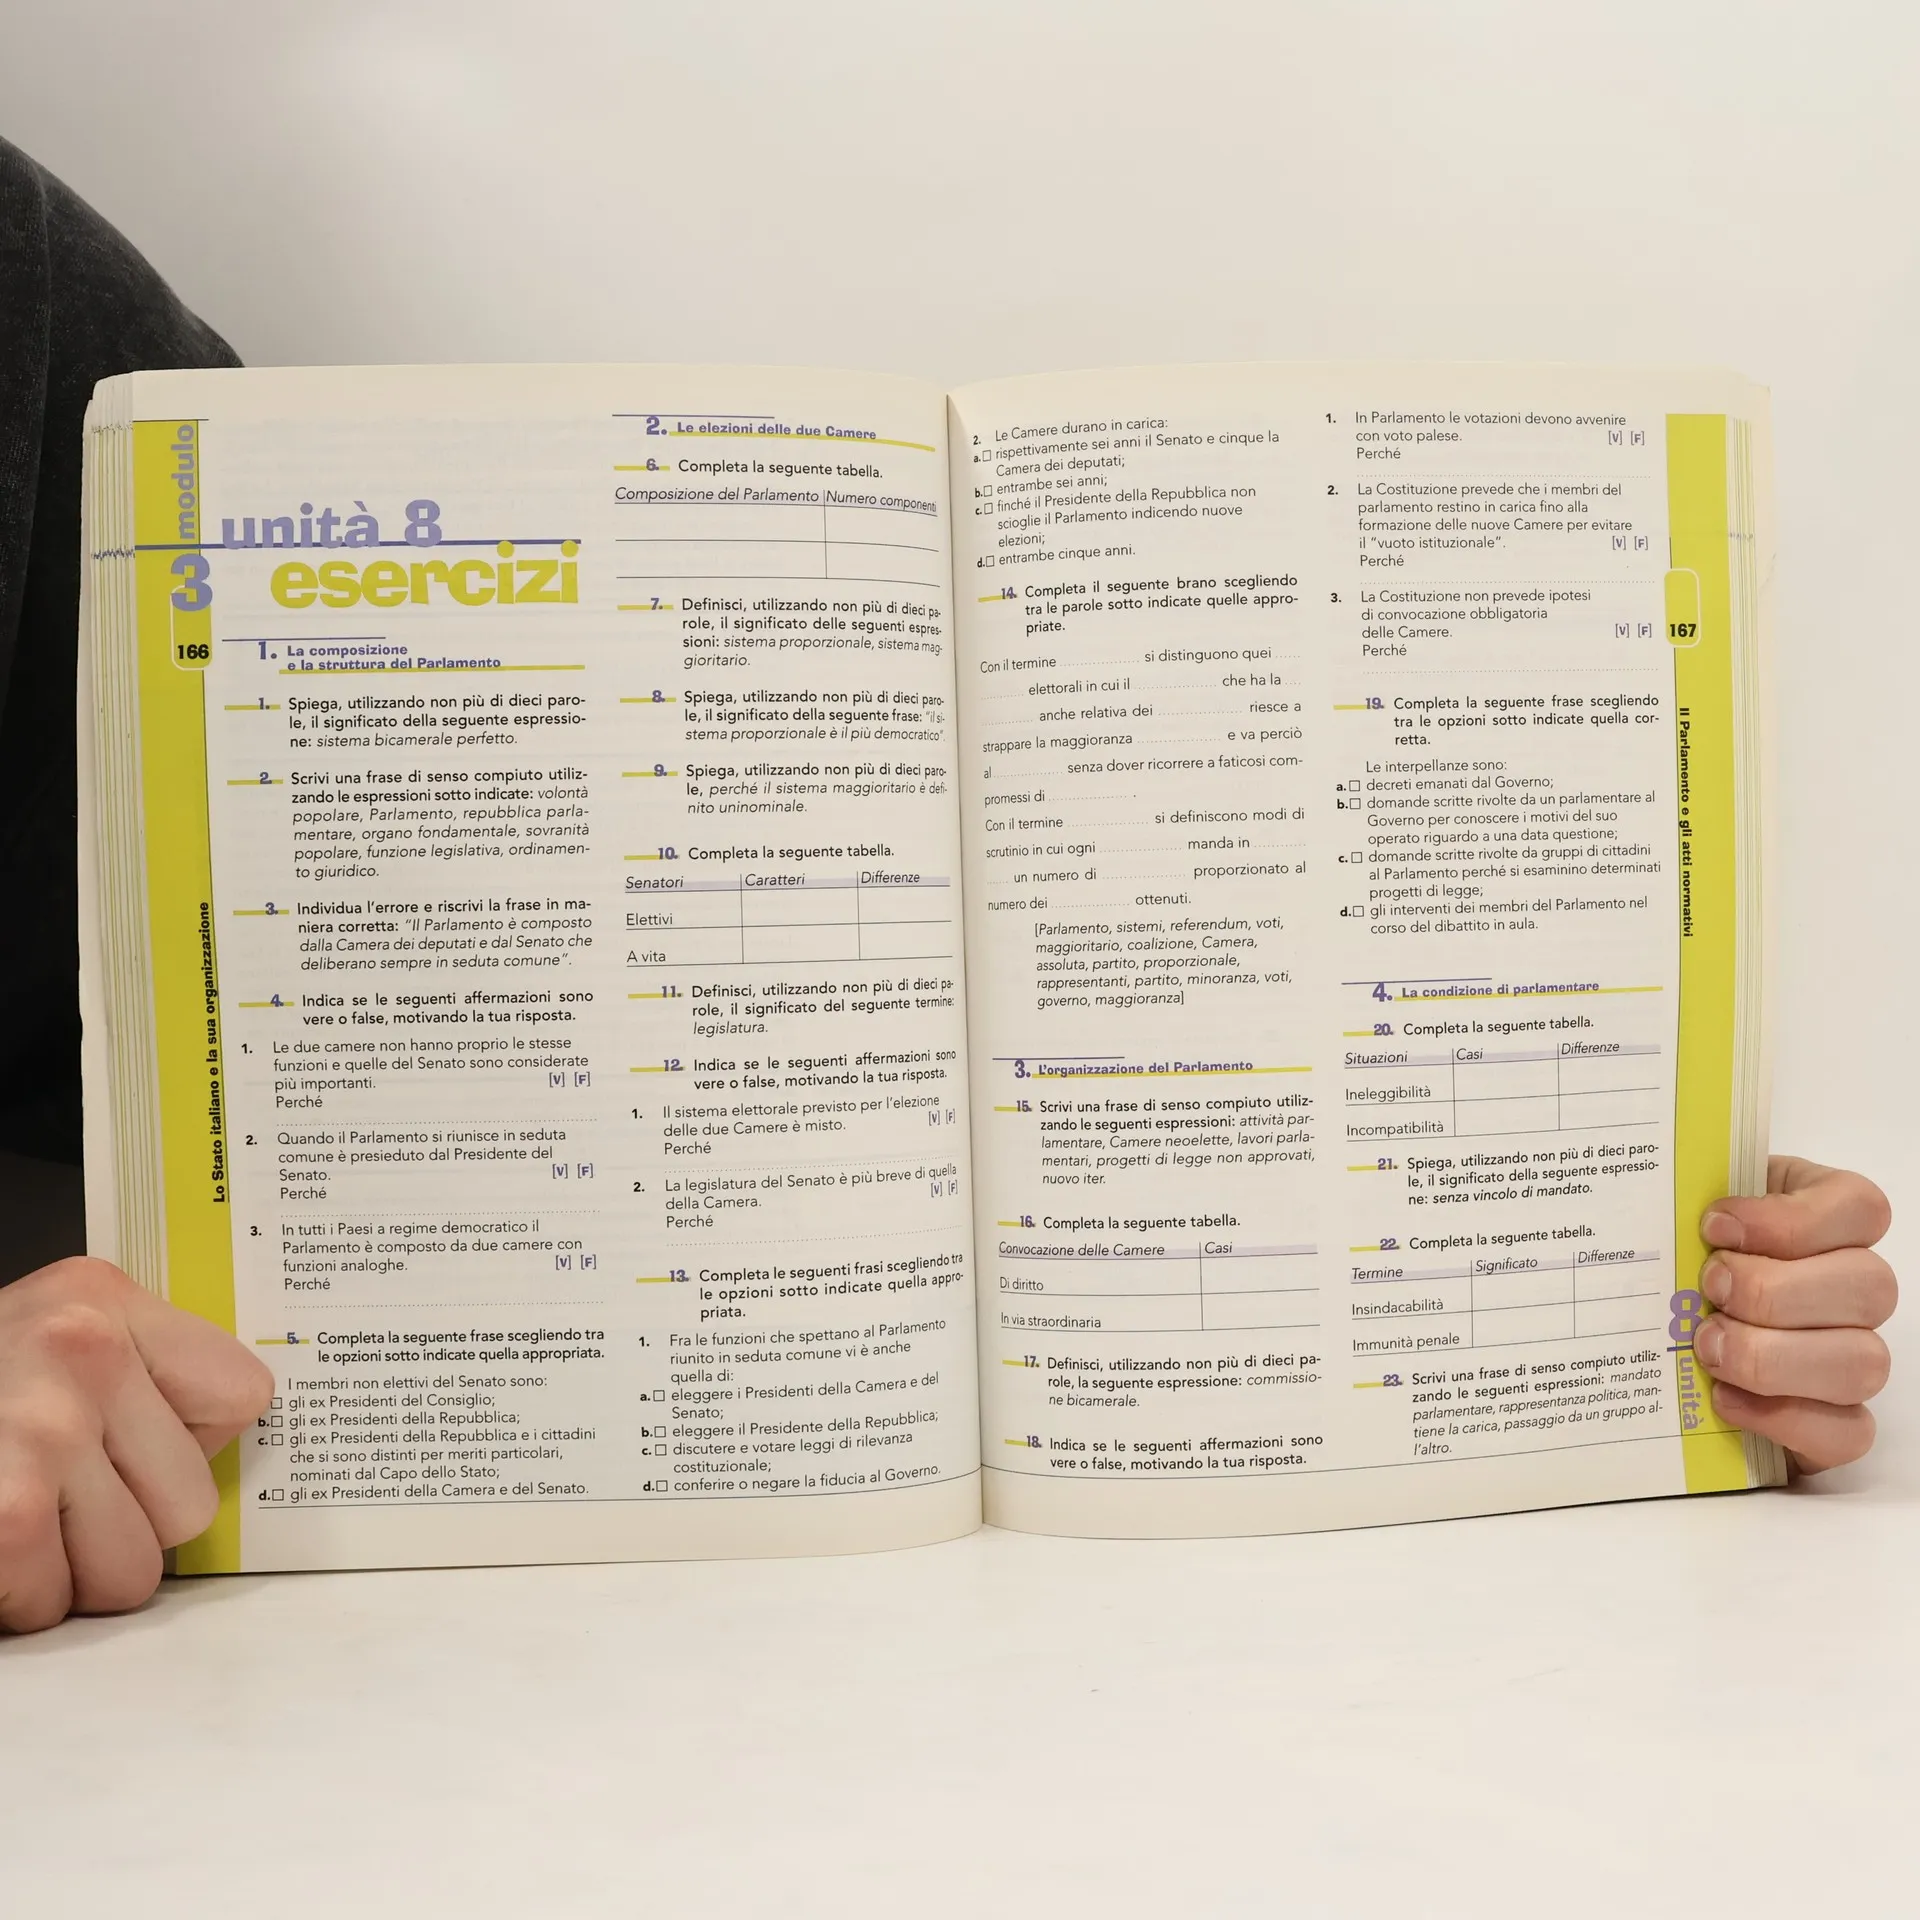 modulo
3
166
Lo Stato italiano e la sua organizzazione
unità 8
esercizi
1. La composizione
e la struttura del Parlamento
1. Spiega, utilizzando non più di dieci paro-
le, il significato della seguente espressio-
ne: sistema bicamerale perfetto.
2. Scrivi una frase di senso compiuto utiliz-
zando le espressioni sotto indicate: volontà
popolare, Parlamento, repubblica parla-
mentare, organo fondamentale, sovranità
popolare, funzione legislativa, ordinamen-
to giuridico.
3. Individua l'errore e riscrivi la frase in ma-
niera corretta: "Il Parlamento è composto
dalla Camera dei deputati e dal Senato che
deliberano sempre in seduta comune".
4. Indica se le seguenti affermazioni sono
vere o false, motivando la tua risposta.
1. Le due camere non hanno proprio le stesse
funzioni e quelle del Senato sono considerate
più importanti. [V] [F]
Perché
2. Quando il Parlamento si riunisce in seduta
comune è presieduto dal Presidente del
Senato. [V] [F]
Perché
3. In tutti i Paesi a regime democratico il
Parlamento è composto da due camere con
funzioni analoghe. [V] [F]
Perché
5. Completa la seguente frase scegliendo tra
le opzioni sotto indicate quella appropriata.
I membri non elettivi del Senato sono:
☐ gli ex Presidenti del Consiglio;
b.☐ gli ex Presidenti della Repubblica;
c.☐ gli ex Presidenti della Repubblica e i cittadini
che si sono distinti per meriti particolari,
nominati dal Capo dello Stato;
d.☐ gli ex Presidenti della Camera e del Senato.
2. Le elezioni delle due Camere
6. Completa la seguente tabella.
Composizione del Parlamento Numero componenti
7. Definisci, utilizzando non più di dieci pa-
role, il significato delle seguenti espres-
sioni: sistema proporzionale, sistema mag-
gioritario.
8. Spiega, utilizzando non più di dieci paro-
le, il significato della seguente frase: "il si-
stema proporzionale è il più democratico".
9. Spiega, utilizzando non più di dieci paro-
le, perché il sistema maggioritario è defi-
nito uninominale.
10. Completa la seguente tabella.
Senatori Caratteri Differenze
Elettivi
A vita
11. Definisci, utilizzando non più di dieci pa-
role, il significato del seguente termine:
legislatura.
12. Indica se le seguenti affermazioni sono
vere o false, motivando la tua risposta.
1. Il sistema elettorale previsto per l'elezione
delle due Camere è misto. [V] [F]
Perché
2. La legislatura del Senato è più breve di quella
della Camera. [V] [F]
Perché
13. Completa le seguenti frasi scegliendo tra
le opzioni sotto indicate quella appro-
priata.
1. Fra le funzioni che spettano al Parlamento
riunito in seduta comune vi è anche
quella di:
a.☐ eleggere i Presidenti della Camera e del
Senato;
b.☐ eleggere il Presidente della Repubblica;
c.☐ discutere e votare leggi di rilevanza
costituzionale;
d.☐ conferire o negare la fiducia al Governo.
2. Le Camere durano in carica:
a.☐ rispettivamente sei anni il Senato e cinque la
Camera dei deputati;
b.☐ entrambe sei anni;
c.☐ finché il Presidente della Repubblica non
scioglie il Parlamento indicendo nuove
elezioni;
d.☐ entrambe cinque anni.
14. Completa il seguente brano scegliendo
tra le parole sotto indicate quelle appro-
priate.
Con il termine .......... si distinguono quei ......
.......... elettorali in cui il .......... che ha la ....
.......... anche relativa dei .......... riesce a
strappare la maggioranza .......... e va perciò
al .......... senza dover ricorrere a faticosi com-
promessi di .......... .
Con il termine .......... si definiscono modi di
scrutinio in cui ogni .......... manda in ..........
...... un numero di .......... proporzionato al
numero dei .......... ottenuti.
[Parlamento, sistemi, referendum, voti,
maggioritario, coalizione, Camera,
assoluta, partito, proporzionale,
rappresentanti, partito, minoranza, voti,
governo, maggioranza]
3. L'organizzazione del Parlamento
15. Scrivi una frase di senso compiuto utiliz-
zando le seguenti espressioni: attività par-
lamentare, Camere neoelette, lavori parla-
mentari, progetti di legge non approvati,
nuovo iter.
16. Completa la seguente tabella.
Convocazione delle Camere Casi
Di diritto
In via straordinaria
17. Definisci, utilizzando non più di dieci pa-
role, la seguente espressione: commissio-
ne bicamerale.
18. Indica se le seguenti affermazioni sono
vere o false, motivando la tua risposta.
1. In Parlamento le votazioni devono avvenire
con voto palese. [V] [F]
Perché
2. La Costituzione prevede che i membri del
parlamento restino in carica fino alla
formazione delle nuove Camere per evitare
il "vuoto istituzionale". [V] [F]
Perché
3. La Costituzione non prevede ipotesi
di convocazione obbligatoria
delle Camere. [V] [F]
Perché
19. Completa la seguente frase scegliendo
tra le opzioni sotto indicate quella cor-
retta.
Le interpellanze sono:
a.☐ decreti emanati dal Governo;
b.☐ domande scritte rivolte da un parlamentare al
Governo per conoscere i motivi del suo
operato riguardo a una data questione;
c.☐ domande scritte rivolte da gruppi di cittadini
al Parlamento perché si esaminino determinati
progetti di legge;
d.☐ gli interventi dei membri del Parlamento nel
corso del dibattito in aula.
4. La condizione di parlamentare
20. Completa la seguente tabella.
Situazioni Casi Differenze
Ineleggibilità
Incompatibilità
21. Spiega, utilizzando non più di dieci paro-
le, il significato della seguente espressio-
ne: senza vincolo di mandato.
22. Completa la seguente tabella.
Termine Significato Differenze
Insindacabilità
Immunità penale
23. Scrivi una frase di senso compiuto utiliz-
zando le seguenti espressioni: mandato
parlamentare, rappresentanza politica, man-
tiene la carica, passaggio da un gruppo al-
l'altro.
167
Il Parlamento e gli atti normativi
8 unità